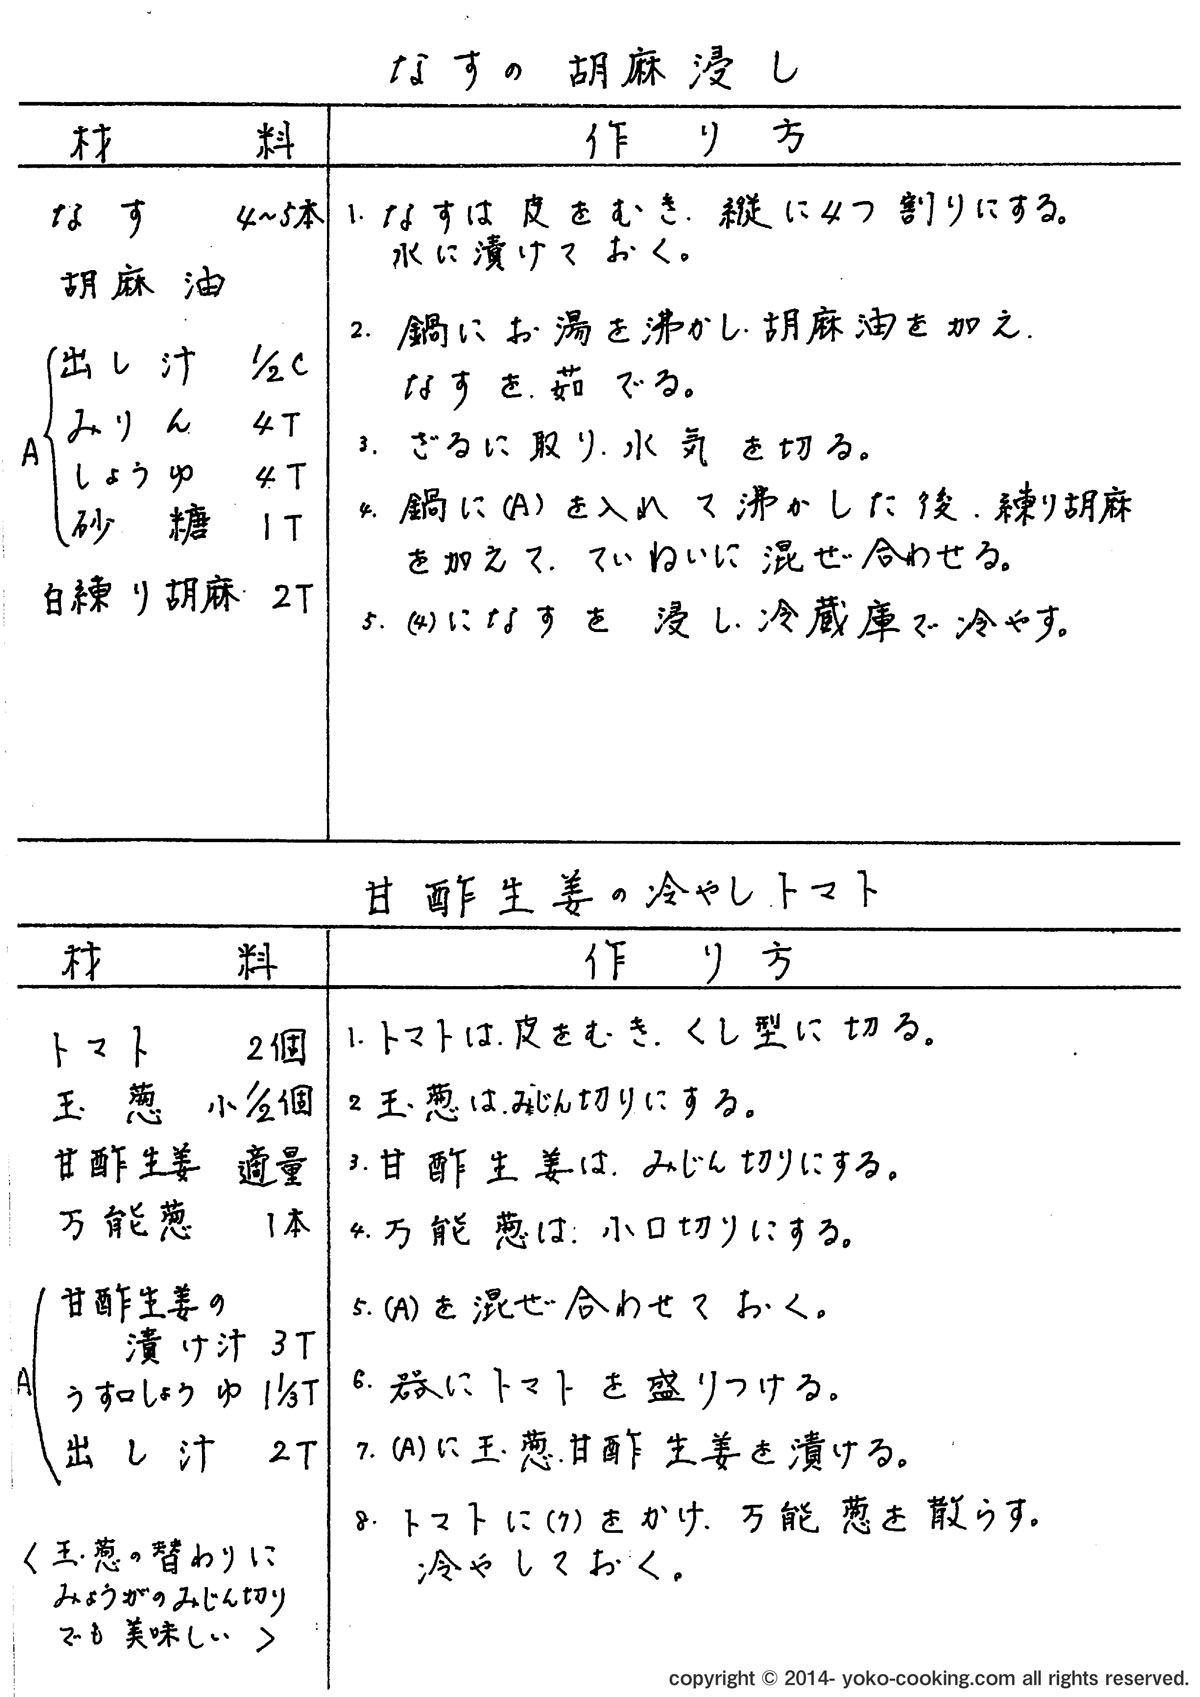 なすの胡麻浸し
材料
作り方
なす 4~5本
胡麻油
A
出し汁 1/2C
みりん 4T
しょうゆ 4T
砂糖 1T
白練り胡麻 2T
1. なすは皮をむき、縦に4つ割りにする。
水に漬けておく。
2. 鍋にお湯を沸かし、胡麻油を加え、
なすを、茹でる。
3. ざるに取り、水気を切る。
4. 鍋に(A)を入れて沸かした後、練り胡麻
を加えて、ていねいに混ぜ合わせる。
5. (4)になすを浸し、冷蔵庫で冷やす。
甘酢生姜の冷やしトマト
材料
作り方
トマト 2個
玉葱 小1/2個
甘酢生姜 適量
万能葱 1本
A
甘酢生姜の
漬け汁 3T
うす口しょうゆ 1 1/3T
出し汁 2T
〈玉葱の替わりに
みょうがのみじん切り
でも美味しい〉
1. トマトは、皮をむき、くし型に切る。
2 玉葱は、みじん切りにする。
3. 甘酢生姜は、みじん切りにする。
4. 万能葱は、小口切りにする。
5. (A)を混ぜ合わせておく。
6. 器にトマトを盛りつける。
7. (A)に玉葱、甘酢生姜を漬ける。
8. トマトに(7)をかけ、万能葱を散らす。
冷やしておく。
copyright © 2014- yoko-cooking.com all rights reserved.